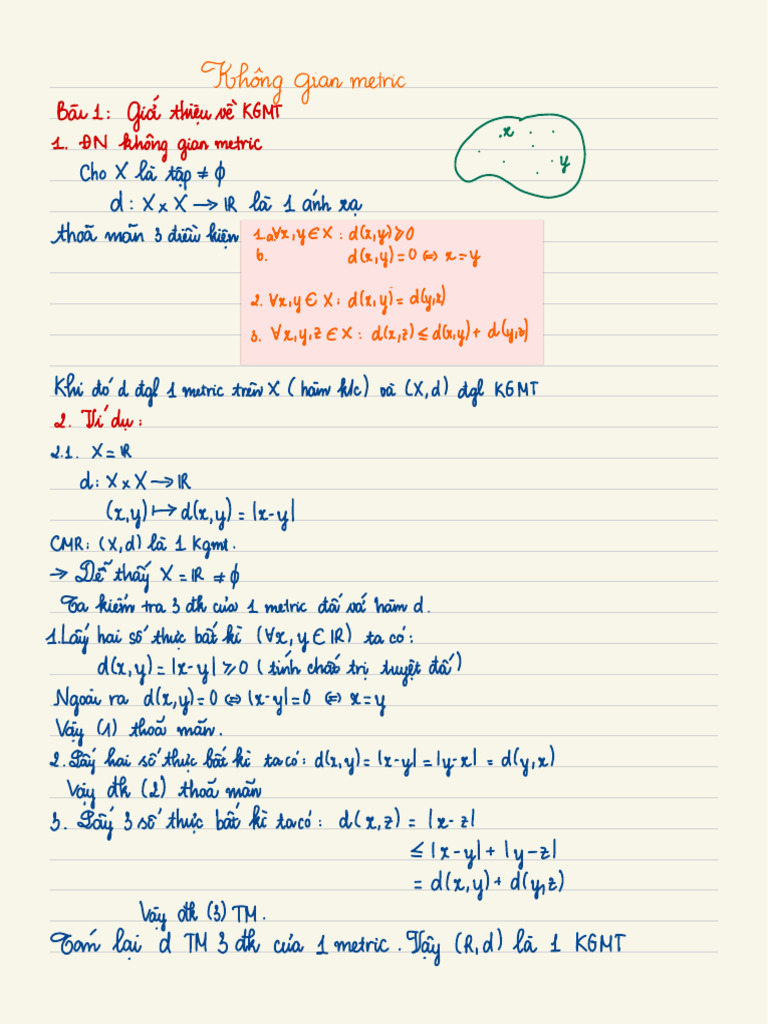 Không gian metric
Bài 1: Giới thiệu về KGMT
1. ĐN không gian metric
x
y
Cho X là tập ≠ ∅
d: X x X → ℝ là 1 ánh xạ
thoả mãn 3 điều kiện
1.a ∀x,y ∈ X : d(x,y) ⩾ 0
b. d(x,y) = 0 ⇔ x = y
2. ∀x,y ∈ X: d(x,y) = d(y,x)
3. ∀x,y,z ∈ X: d(x,z) ≤ d(x,y) + d(y,z)
Khi đó d đgl 1 metric trên X (hàm k/c) và (X,d) đgl KGMT
2. Ví dụ:
2.1. X = ℝ
d: X x X → ℝ
(x,y) ↦ d(x,y) = |x-y|
CMR: (X,d) là 1 Kgmt.
→ Dễ thấy X = ℝ ≠ ∅
Ta kiểm tra 3 đk của 1 metric đối với hàm d.
1. Lấy hai số thực bất kì (∀x,y ∈ ℝ) ta có:
d(x,y) = |x-y| ⩾ 0 (tính chất trị tuyệt đối)
Ngoài ra d(x,y) = 0 ⇔ |x-y| = 0 ⇔ x = y
Vậy (1) thoả mãn.
2. Lấy hai số thực bất kì ta có: d(x,y) = |x-y| = |y-x| = d(y,x)
Vậy đk (2) thoả mãn
3. Lấy 3 số thực bất kì ta có: d(x,z) = |x-z|
≤ |x-y| + |y-z|
= d(x,y) + d(y,z)
Vậy đk (3) TM.
Tóm lại d TM 3 đk của 1 metric. Vậy (R,d) là 1 KGMT